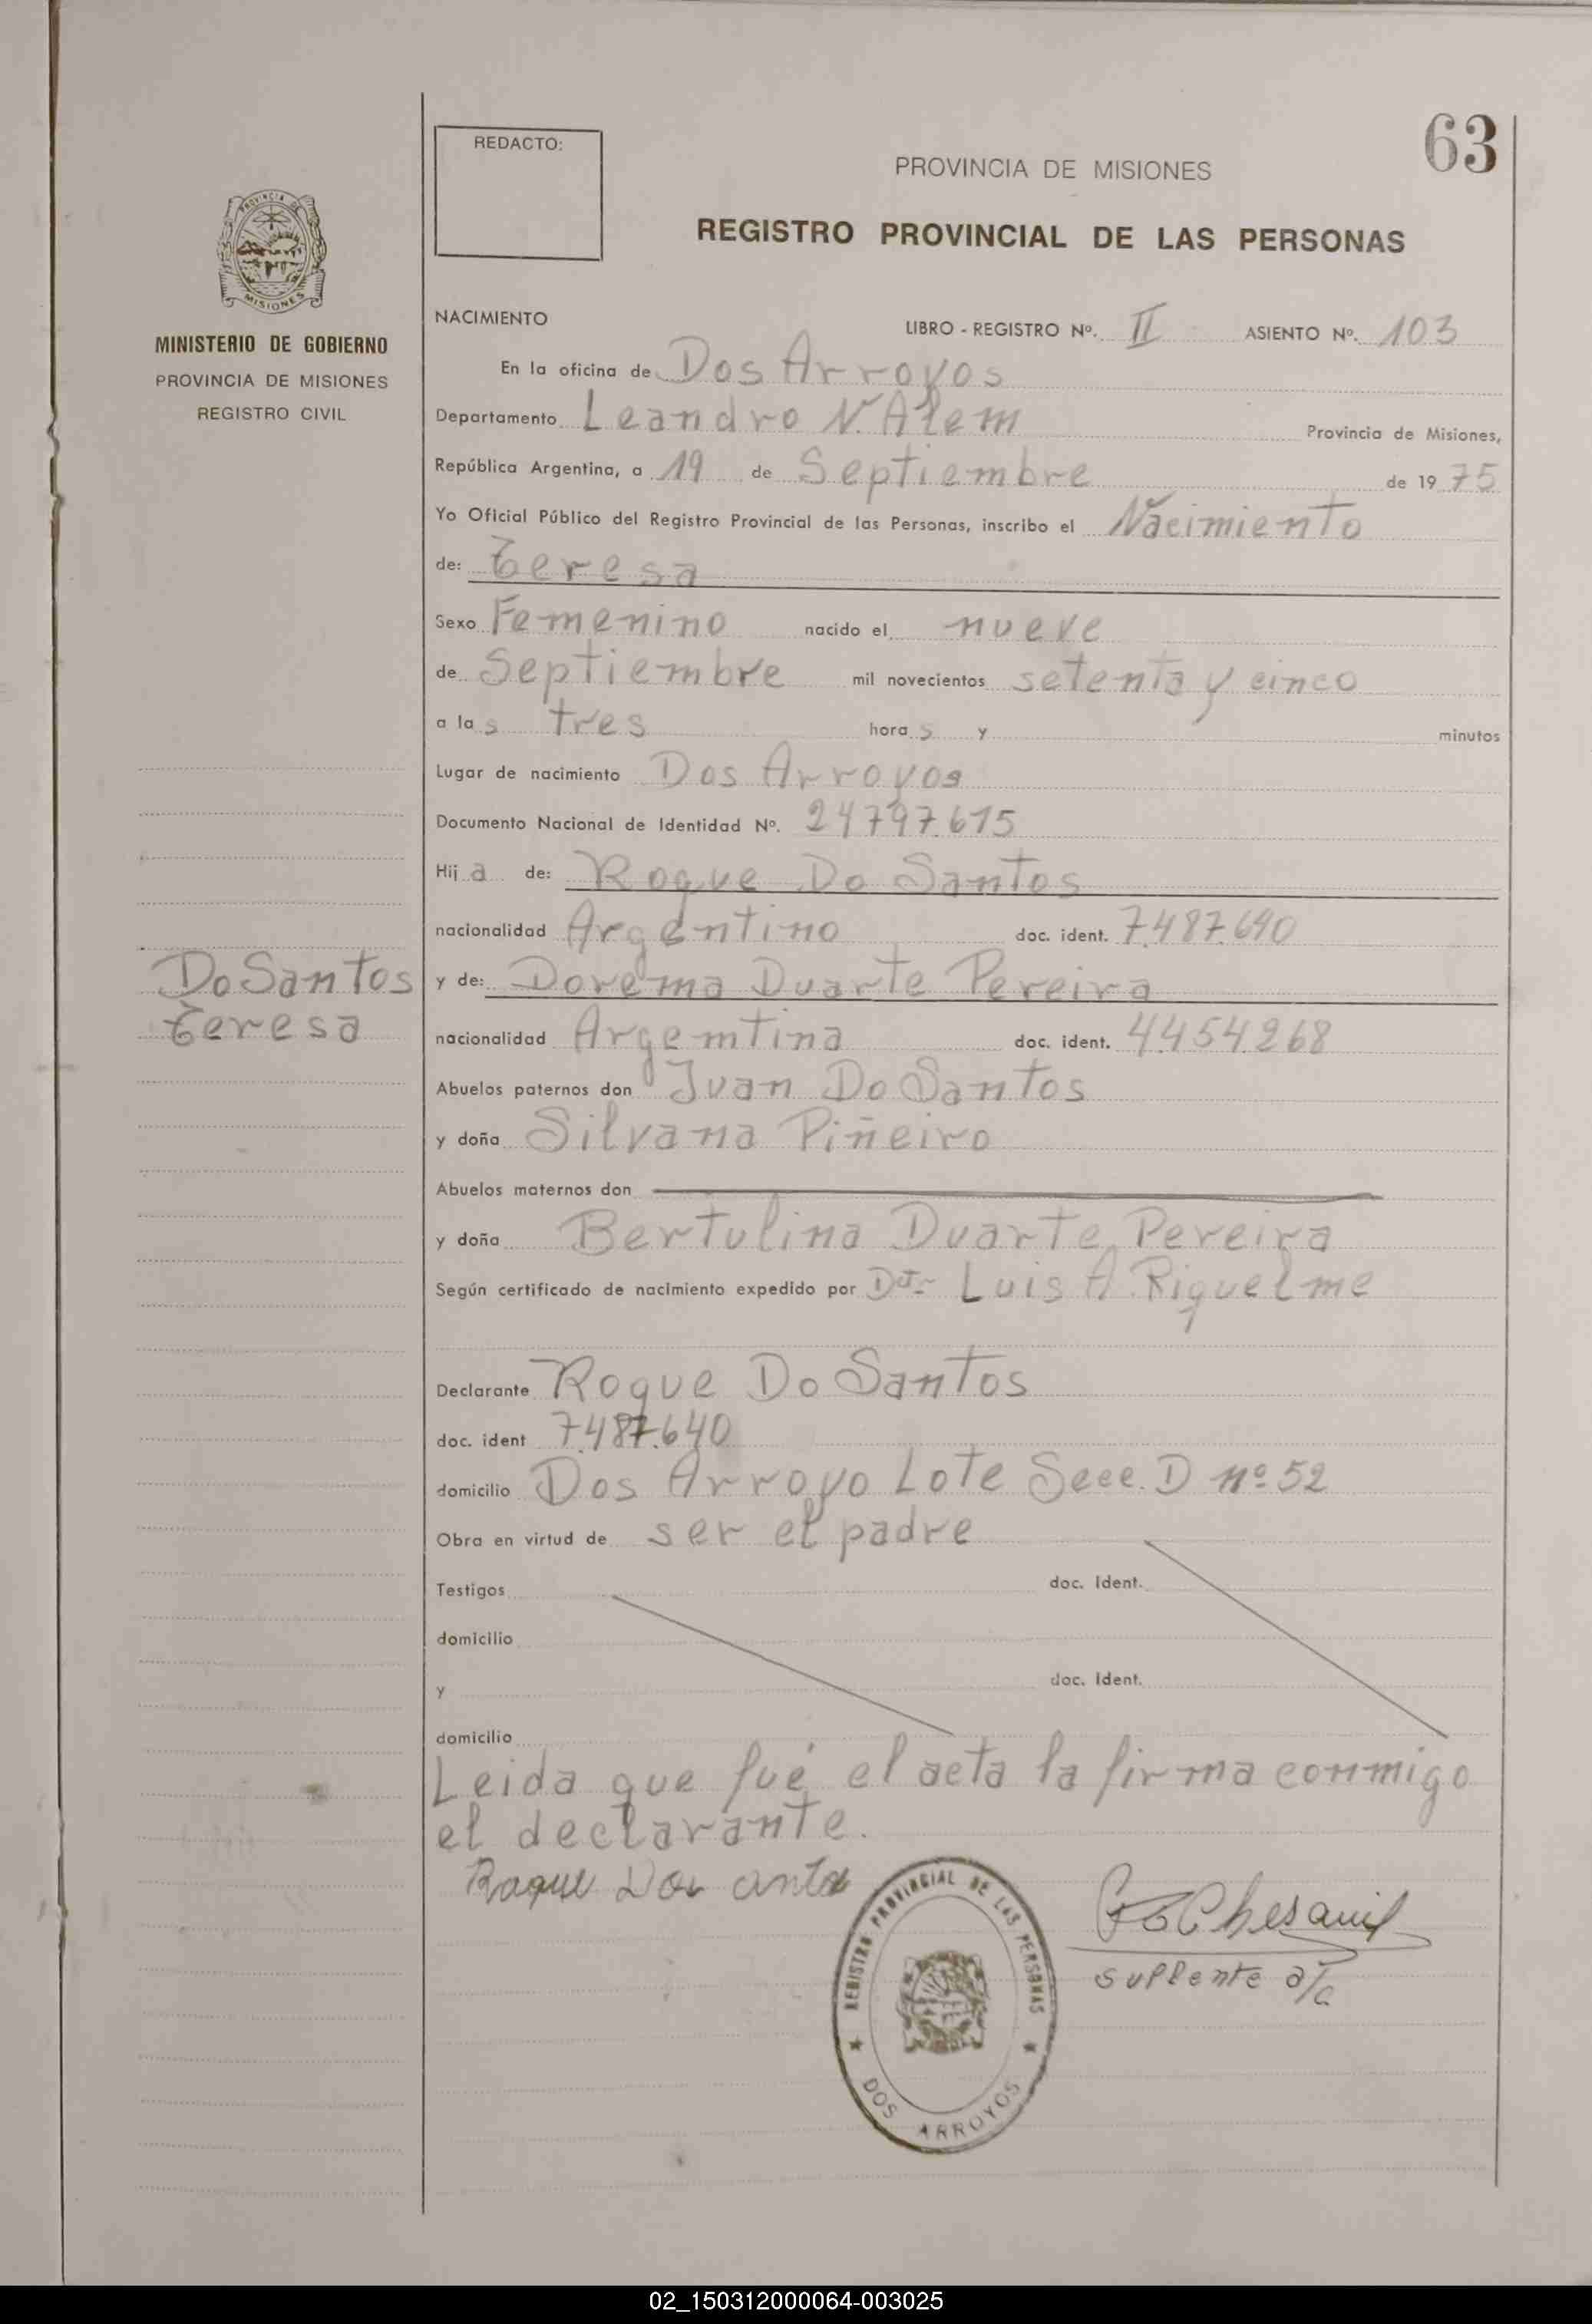 63
REDACTO:
PROVINCIA DE MISIONES
REGISTRO PROVINCIAL DE LAS PERSONAS
PROVINCIA DE
MISIONES
MINISTERIO DE GOBIERNO
PROVINCIA DE MISIONES
REGISTRO CIVIL
NACIMIENTO
LIBRO - REGISTRO Nº. II ASIENTO Nº. 103
En la oficina de Dos Arroyos
Departamento Leandro N. Alem Provincia de Misiones,
República Argentina, a 19 de Septiembre de 19 75
Yo Oficial Público del Registro Provincial de las Personas, inscribo el Nacimiento
de: Teresa
Sexo Femenino nacido el nueve
de Septiembre mil novecientos setenta y cinco
a las tres horas y minutos
Lugar de nacimiento Dos Arroyos
Documento Nacional de Identidad Nº. 24797.615
Hija de: Roque Do Santos
nacionalidad Argentino doc. ident. 7.487.640
Do Santos
Teresa
y de: Dorema Duarte Pereira
nacionalidad Argemtina doc. ident. 4.454.268
Abuelos paternos don Juan Do Santos
y doña Silvana Piñeiro
Abuelos maternos don
y doña Bertulina Duarte Pereira
Según certificado de nacimiento expedido por Dtr Luis A. Riquelme
Declarante Roque Do Santos
doc. ident 7.487.640
domicilio Dos Arroyo Lote Secc. D nº 52
Obra en virtud de ser el padre
Testigos doc. Ident.
domicilio
y doc. Ident.
domicilio
Leida que fué el acta la firma conmigo
el declarante.
Roque Dos anto
suplente a/c
REGISTRO PROVINCIAL DE LAS PERSONAS
DOS ARROYOS
02_150312000064-003025